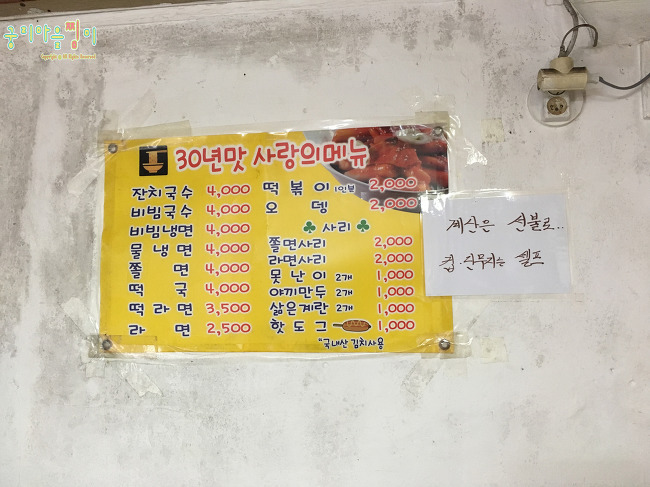 웅이마음찜이
Copyright by All Rights Reserved
30년맛 사랑의메뉴
잔치국수 4,000
비빔국수 4,000
비빔냉면 4,000
물냉면 4,000
쫄면 4,000
떡국 4,000
떡라면 3,500
라면 2,500
떡볶이 1인분 2,000
오뎅 2,000
♣ 사리 ♣
쫄면사리 2,000
라면사리 2,000
못난이 2개 1,000
야끼만두 2개 1,000
삶은계란 2개 1,000
핫도그 1,000
"국내산 김치사용
계산은 선불로..
컵 단무지는 셀프